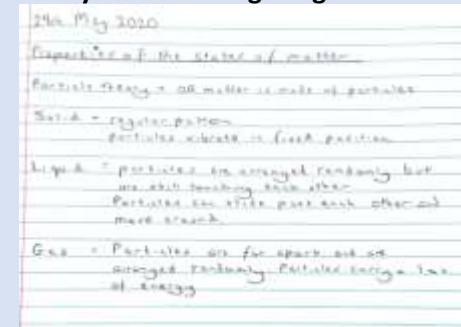 29th May 2020
Properties of the states of matter
Particle theory = all matter is made of particles
Solid = regular pattern
particles vibrate in fixed position
Liquid = particles are arranged randomly but
are still touching each other
Particles can slide past each other and
move around.
Gas = Particles are far apart and are
arranged randomly. Particles carry a lot
of energy